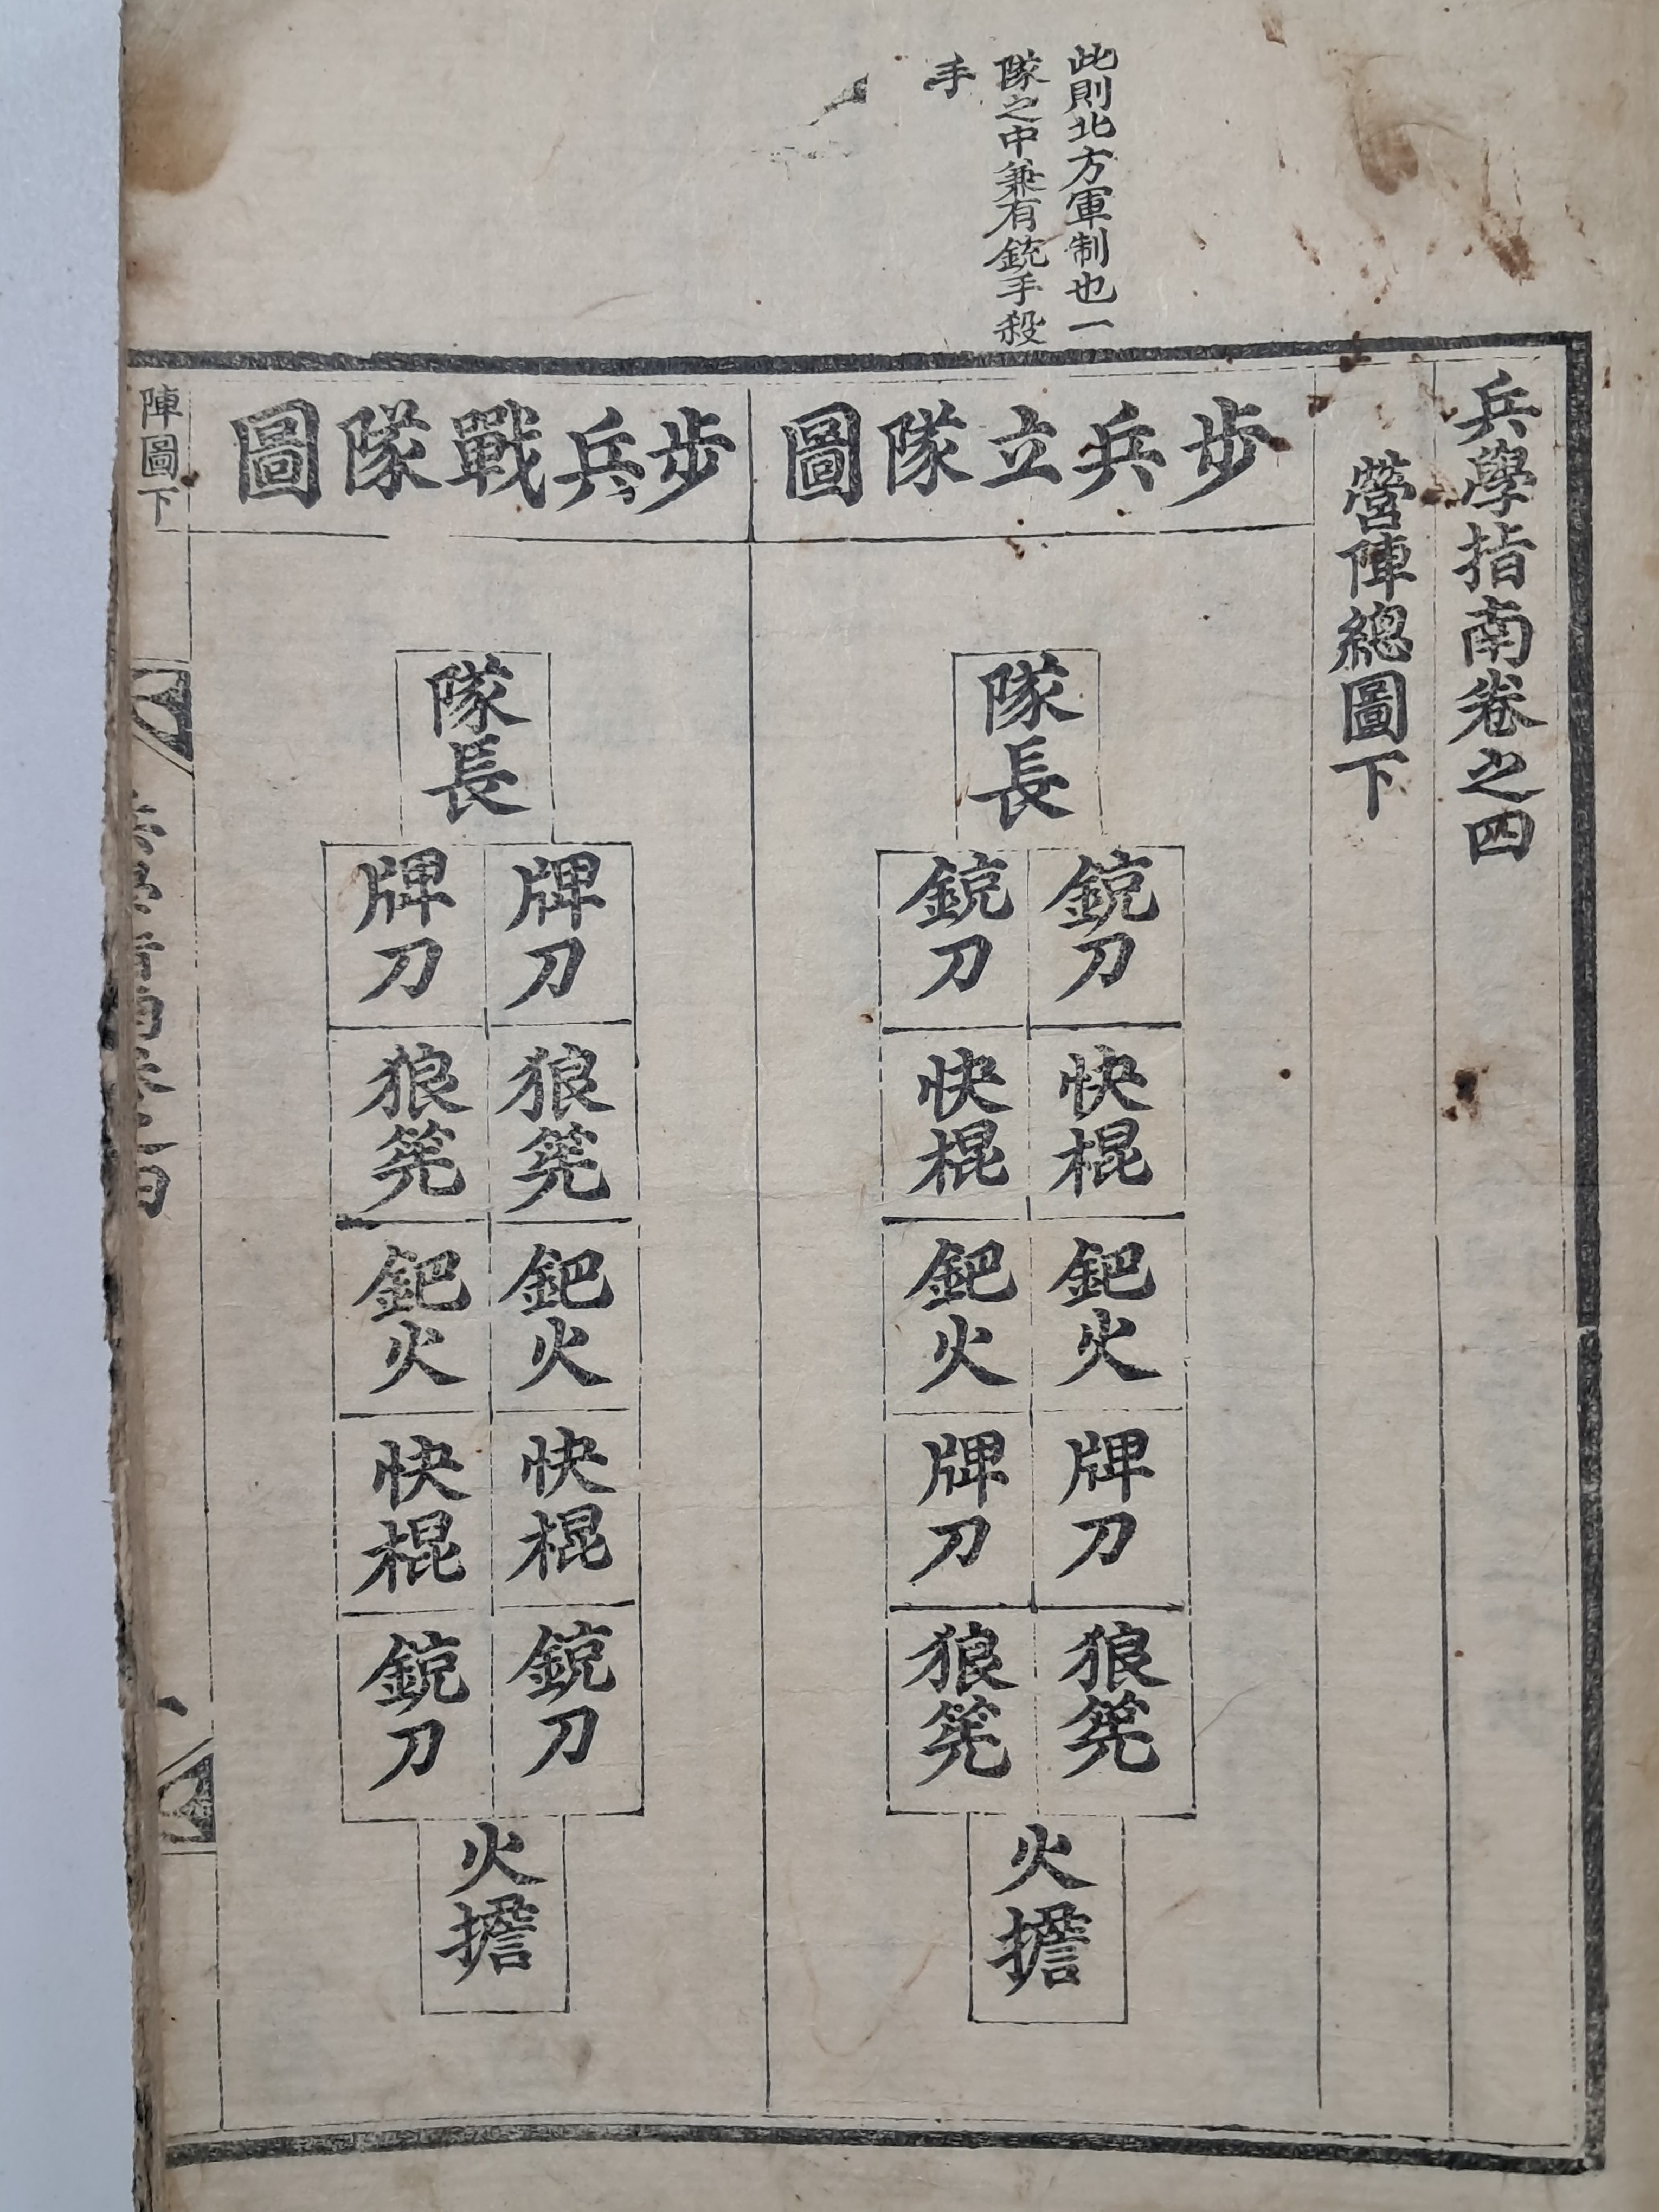 此則北方軍制也一
隊之中兼有銃手殺
手
兵學指南卷之四
營陣總圖下
步兵立隊圖
隊長
銃刀 銃刀
快棍 快棍
鈀火 鈀火
牌刀 牌刀
狼筅 狼筅
火擔
步兵戰隊圖
隊長
牌刀 牌刀
狼筅 狼筅
鈀火 鈀火
快棍 快棍
銃刀 銃刀
火擔
陣圖下